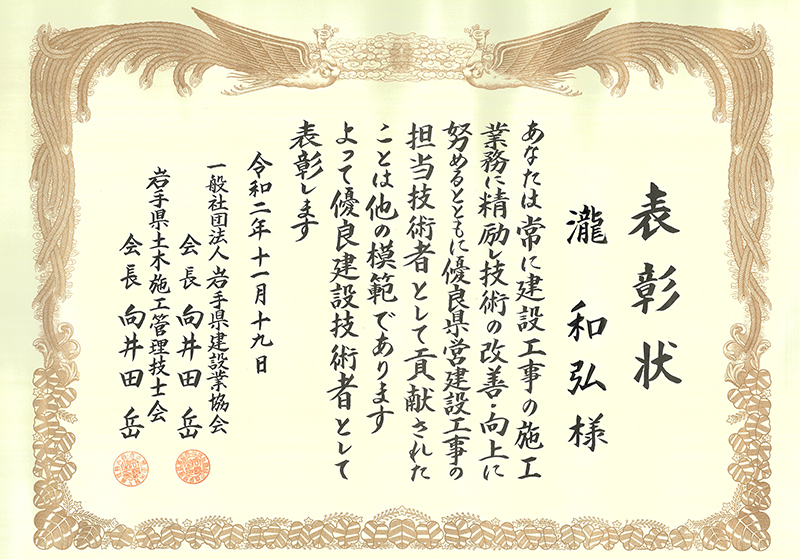 表彰状
瀧 和弘 様
あなたは常に建設工事の施工
業務に精励し技術の改善・向上に
努めるとともに優良県営建設工事の
担当技術者として貢献された
ことは他の模範であります
よって優良建設技術者として
表彰します
令和二年十一月十九日
一般社団法人 岩手県建設業協会
会長 向井田 岳
岩手県土木施工管理技士会
会長 向井田 岳